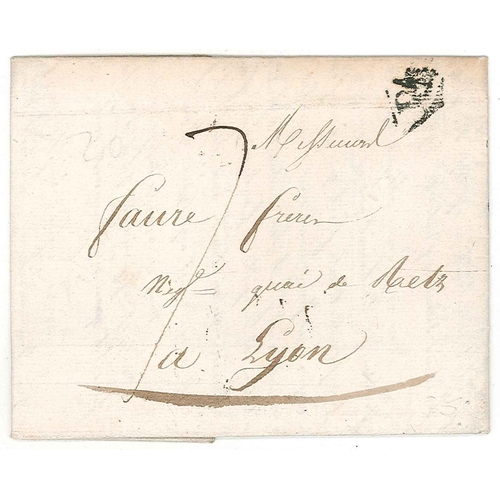 Messieurs
faure frères
Negts quai de Retz
a Lyon
7